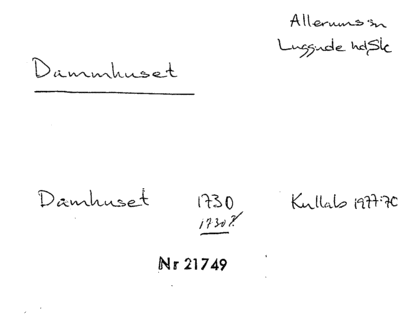 Allerums sn
Luggude hd, Sk
Dammhuset
Damhuset 1730 Kullab 1977:70
1730 1/1
Nr 21749